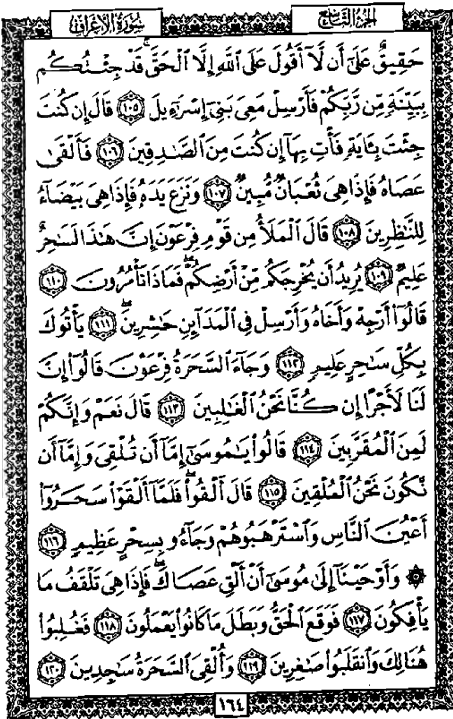 سورة الأعراف الجزء التاسع
حَقِيقٌ عَلَىٰٓ أَن لَّآ أَقُولَ عَلَى ٱللَّهِ إِلَّا ٱلْحَقَّ ۚ قَدْ جِئْتُكُم
بِبَيِّنَةٍ مِّن رَّبِّكُمْ فَأَرْسِلْ مَعِىَ بَنِىٓ إِسْرَٰٓءِيلَ ١٠٥ قَالَ إِن كُنتَ
جِئْتَ بِـَٔايَةٍ فَأْتِ بِهَآ إِن كُنتَ مِنَ ٱلصَّـٰدِقِينَ ١٠٦ فَأَلْقَىٰ
عَصَاهُ فَإِذَا هِىَ ثُعْبَانٌ مُّبِينٌ ١٠٧ وَنَزَعَ يَدَهُۥ فَإِذَا هِىَ بَيْضَآءُ
لِلنَّـٰظِرِينَ ١٠٨ قَالَ ٱلْمَلَأُ مِن قَوْمِ فِرْعَوْنَ إِنَّ هَـٰذَا لَسَـٰحِرٌ
عَلِيمٌ ١٠٩ يُرِيدُ أَن يُخْرِجَكُم مِّنْ أَرْضِكُمْ ۖ فَمَاذَا تَأْمُرُونَ ١١٠
قَالُوٓا۟ أَرْجِهْ وَأَخَاهُ وَأَرْسِلْ فِى ٱلْمَدَآئِنِ حَـٰشِرِينَ ١١١ يَأْتُوكَ
بِكُلِّ سَـٰحِرٍ عَلِيمٍ ١١٢ وَجَآءَ ٱلسَّحَرَةُ فِرْعَوْنَ قَالُوٓا۟ إِنَّ
لَنَا لَأَجْرًا إِن كُنَّا نَحْنُ ٱلْغَـٰلِبِينَ ١١٣ قَالَ نَعَمْ وَإِنَّكُمْ
لَمِنَ ٱلْمُقَرَّبِينَ ١١٤ قَالُوا۟ يَـٰمُوسَىٰٓ إِمَّآ أَن تُلْقِىَ وَإِمَّآ أَن
نَّكُونَ نَحْنُ ٱلْمُلْقِينَ ١١٥ قَالَ أَلْقُوا۟ ۖ فَلَمَّآ أَلْقَوْا۟ سَحَرُوٓا۟
أَعْيُنَ ٱلنَّاسِ وَٱسْتَرْهَبُوهُمْ وَجَآءُو بِسِحْرٍ عَظِيمٍ ١١٦
۞ وَأَوْحَيْنَآ إِلَىٰ مُوسَىٰٓ أَنْ أَلْقِ عَصَاكَ ۖ فَإِذَا هِىَ تَلْقَفُ مَا
يَأْفِكُونَ ١١٧ فَوَقَعَ ٱلْحَقُّ وَبَطَلَ مَا كَانُوا۟ يَعْمَلُونَ ١١٨ فَغُلِبُوا۟
هُنَالِكَ وَٱنقَلَبُوا۟ صَـٰغِرِينَ ١١٩ وَأُلْقِىَ ٱلسَّحَرَةُ سَـٰجِدِينَ ١٢٠
١٦٤